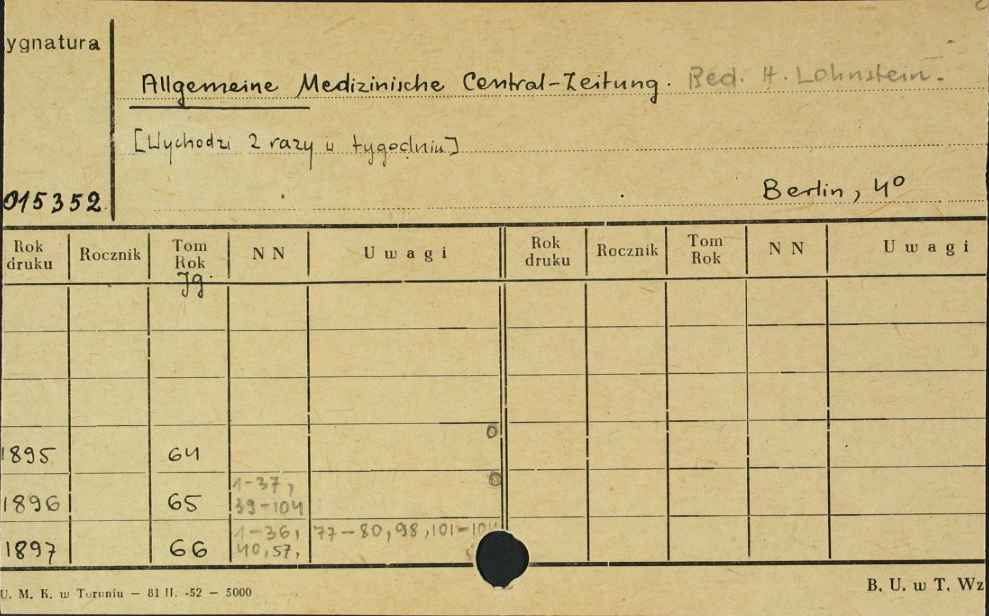 ygnatura
Allgemeine Medizinische Central-Zeitung. Red. H. Lohnstein.
[Wychodzi 2 razy w tygodniu]
015352
Berlin, 4º
Rok druku Rocznik Tom Rok Jg. NN Uwagi Rok druku Rocznik Tom Rok NN Uwagi
1895 64
1896 65 1-37, 39-104
1897 66 1-36, 40,57, 77-80,98,101-104
U. M. K. w Toruniu — 81 II. -52 — 5000
B. U. w T. Wz